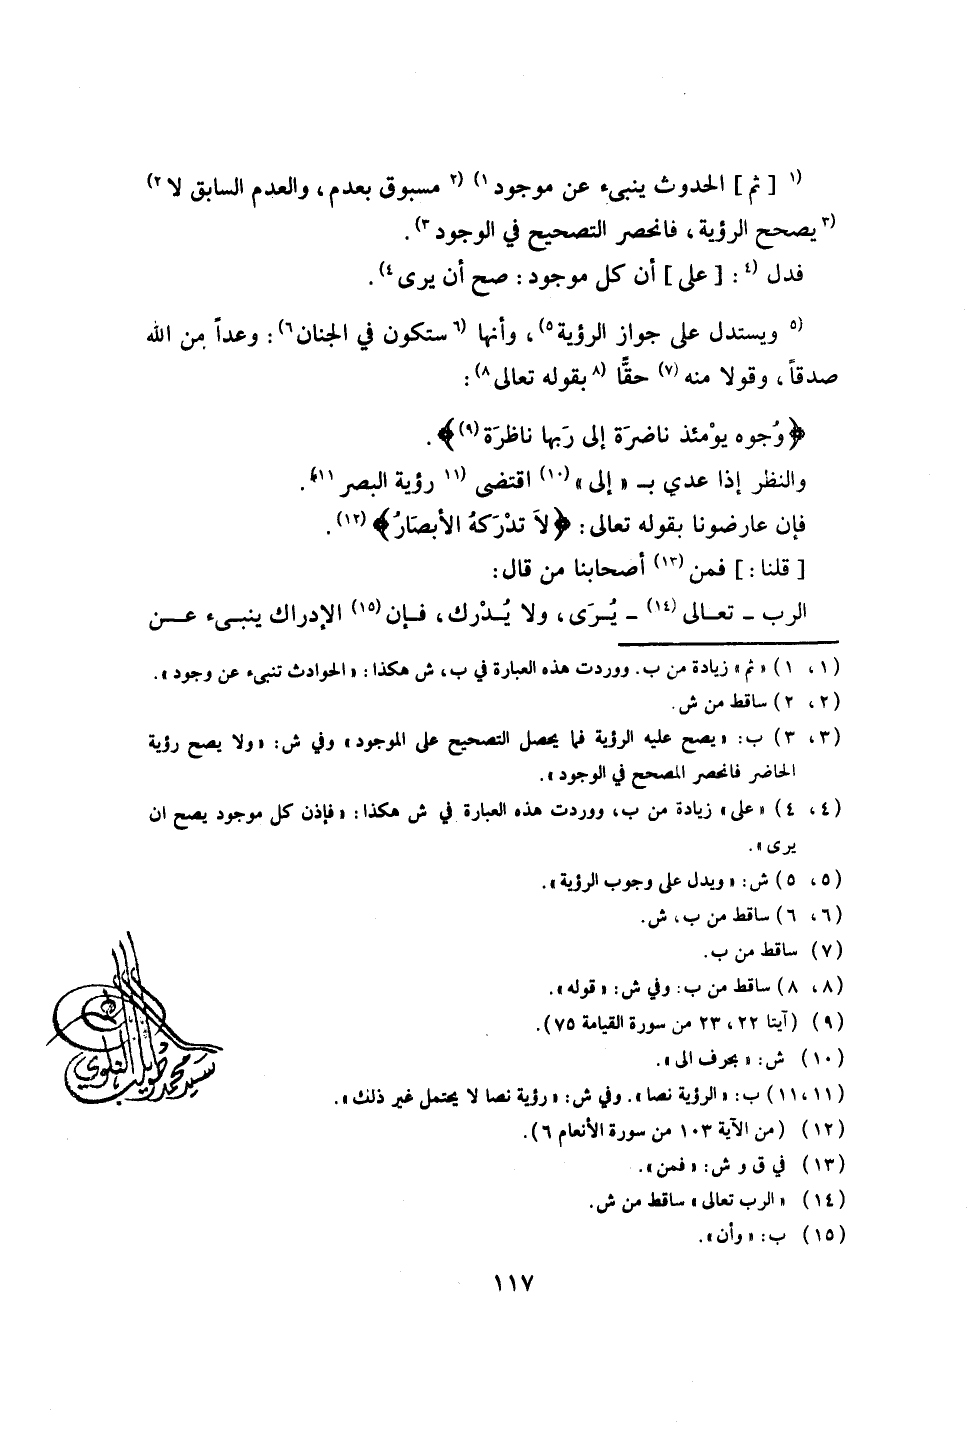 (١ [ ثم ] الحدوث ينبىء عن موجود ١) (٢ مسبوق بعدم ، والعدم السابق لا ٢)
(٣ يصحح الرؤية ، فانحصر التصحيح في الوجود ٣) .
فدل (٤ : [ على ] أن كل موجود : صح أن يرى ٤) .
(٥ ويستدل على جواز الرؤية ٥) ، وأنها (٦ ستكون في الجنان ٦) : وعداً من الله
صدقاً ، وقولا منه (٧) حقًّا (٨ بقوله تعالى ٨) :
﴿ وُجوه يوْمئذ ناضرَة إلى رَبها ناظرَة (٩) ﴾ .
والنظر إذا عدي بـ « إلى » (١٠) اقتضى (١١ رؤية البصر ١١) .
فإن عارضونا بقوله تعالى : ﴿ لاَ تدْرَكهُ الأبصَارُ ﴾ (١٢) .
[ قلنا : ] فمن (١٣) أصحابنا من قال :
الرب ـ تعـالى (١٤) ـ يُـرَى ، ولا يُـدْرك ، فـإن (١٥) الإدراك ينبـىء عـن
(١ ، ١) « ثم » زيادة من ب . ووردت هذه العبارة في ب ، ش هكذا : « الحوادث تنبىء عن وجود » .
(٢ ، ٢) ساقط من ش .
(٣ ، ٣) ب : « يصح عليه الرؤية فما يحصل التصحيح على الموجود » وفي ش : « ولا يصح رؤية
الحاضر فانحصر المصحح في الوجود » .
(٤ ، ٤) « على » زيادة من ب ، ووردت هذه العبارة في ش هكذا : « فإذن كل موجود يصح ان
يرى » .
(٥ ، ٥) ش : « ويدل على وجوب الرؤية » .
(٦ ، ٦) ساقط من ب ، ش .
(٧) ساقط من ب .
(٨ ، ٨) ساقط من ب : وفي ش : « قوله » .
(٩) (آيتا ٢٢ ، ٢٣ من سورة القيامة ٧٥) .
(١٠) ش : « بحرف الى » .
(١١،١١) ب : « الرؤية نصا » . وفي ش : « رؤية نصا لا يحتمل غير ذلك » .
(١٢) (من الآية ١٠٣ من سورة الأنعام ٦) .
(١٣) في ق و ش : « فمن » .
(١٤) « الرب تعالى » ساقط من ش .
(١٥) ب : « وأن » .
١١٧